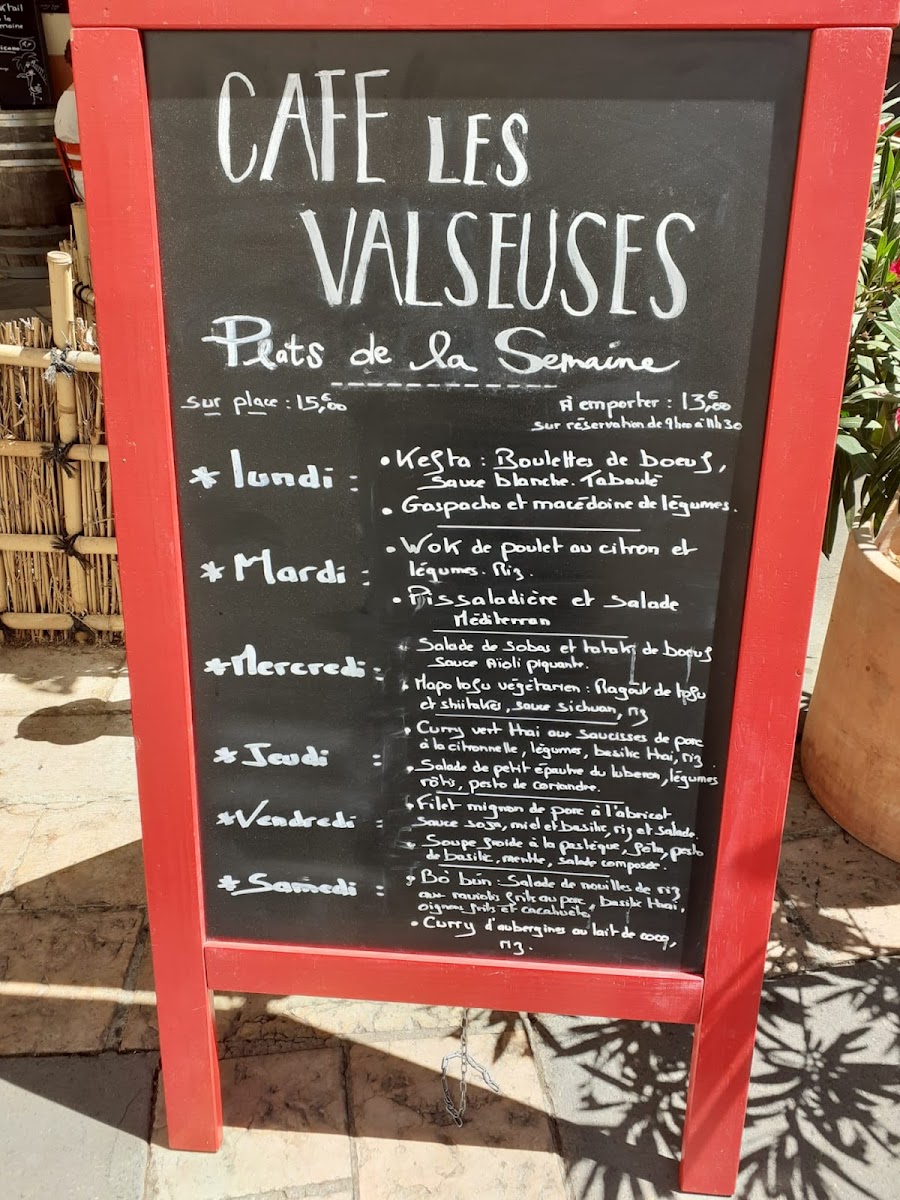 CAFE LES
VALSEUSES
Plats de la Semaine
sur place : 15,€00
À emporter : 13,€00
sur réservation de 9h00 à 11h30
* lundi :
• Kefta : Boulettes de boeuf,
Sauce blanche. Taboulé
• Gaspacho et macédoine de légumes.
* Mardi :
• Wok de poulet au citron et
légumes. Riz.
• Pissaladière et Salade
Méditerran
* Mercredi :
• Salade de sobas et tataki de boeuf
Sauce Aïoli piquante.
• Mapo tofu végétarien : Ragoût de tofu
et shiitakés, sauce sichuan, riz
* Jeudi :
• Curry vert thaï aux saucisses de porc
à la citronnelle, légumes, basilic thaï, riz.
• Salade de petit épautre du luberon, légumes
rôtis, pesto de coriandre.
* Vendredi :
• Filet mignon de porc à l'abricot
sauce soja, miel et basilic, riz et salade.
• Soupe froide à la pastèque, féta, pesto
de basilic, menthe, salade composée.
* Samedi :
• Bò bún : Salade de nouilles de riz
aux raviolis frits au porc, basilic thaï,
oignons frits et cacahuète,
• Curry d'aubergines au lait de coco,
riz.